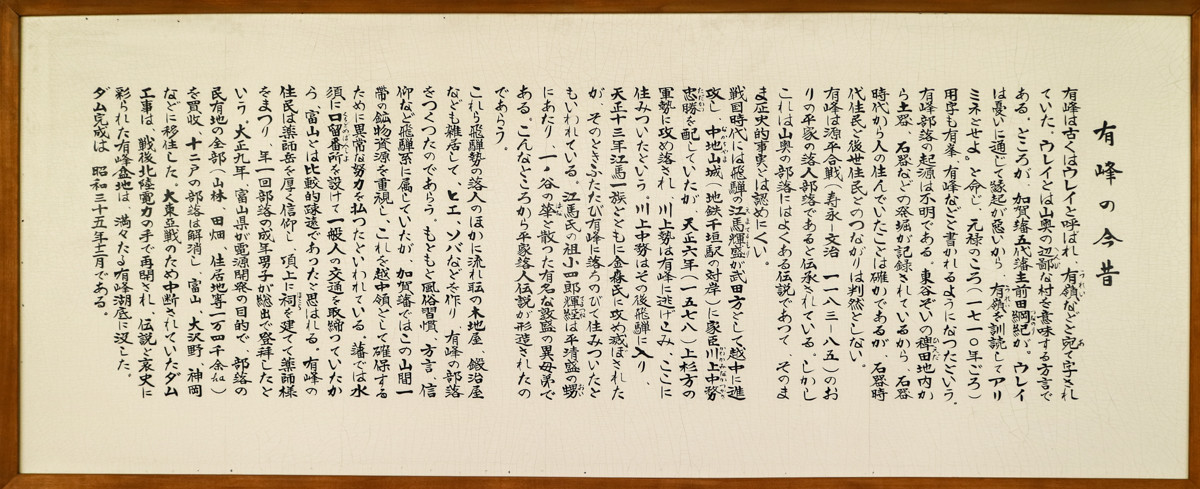 有峰の今昔
有峰は古くはウレイと呼ばれ、有嶺などと宛て字され
ていた。ウレイとは山奥の辺鄙な村を意味する方言で
ある。ところが、加賀藩五代藩主前田綱紀が。ウレイ
は憂いに通じて縁起が悪いから、有嶺を訓読してアリ
ミネとせよ。と命じ、元禄のころ(一七一〇年ごろ)
用字も有峯、有峰などと書かれるようになつたという。
有峰部落の起源は不明である。東谷ぞいの稗田地内か
ら土器、石器などの発掘が記録されているから、石器
時代から人の住んでいたことは確かであるが、石器時
代住民と後世住民とのつながりは判然としない。
有峰は源平合戦(寿永ー文治 一一八三ー八五)のお
りの平家の落人部落であると伝承されている。しかし
これは山奥の部落にはよくある伝説であつて、そのま
ま正史的事実とは認めにくい。
戦国時代には飛騨の江馬輝盛が武田方として越中に進
攻し、中地山城(地鉄千垣駅の対岸)に家臣川上中務
忠勝を配していたが、天正六年(一五七八)上杉方の
軍勢に攻め落され、川上勢は有峰に逃げこみ、ここに
住みついたという。川上中務はその後飛騨に入り、
天正十三年江馬一族とともに金森氏に攻め滅ぼされた
が、そのときふたたび有峰に落ちのびて住みついたと
もいわれている。江馬氏の祖小四郎輝経は平清盛の甥
にあたり、一ノ谷の華と散つた有名な敦盛の異母弟で
ある。こんなところから平家落人伝説が形造されたの
であらう。
これら飛騨勢の落人のほかに流れ転の木地屋、鍛冶屋
なども雑居して、ヒエ、ソバなどを作り、有峰の部落
をつくつたのであらう。もともと風俗習慣、方言、信
仰など飛騨系に属していたが、加賀藩ではこの山間一
帯の鉱物資源を重視し、これを越中領として確保する
ために異常な努力を払つたといわれている。藩では水
須に口留番所を設けて一般人の交通を取締つていたか
ら、富山とは比較的疎遠であつたと思はれる。有峰の
住民は薬師岳を厚く信仰し、頂上に祠を建てて薬師様
をまつり、年一回部落の成年男子が総出で登拝したと
いう。大正九年、富山県が電源開発の目的で、部落の
民有地の全部(山林、田畑、住居地等一万四千余㎢)
を買収、十二戸の部落は解消し、富山、大沢野、神岡
などに移住した。大東亜戦のため中断されていたダム
工事は、戦後北陸電力の手で再開され、伝説と哀史に
彩られた有峰盆地は、満々たる有峰湖底に没した。
ダム完成は 昭和三十五年十二月である。